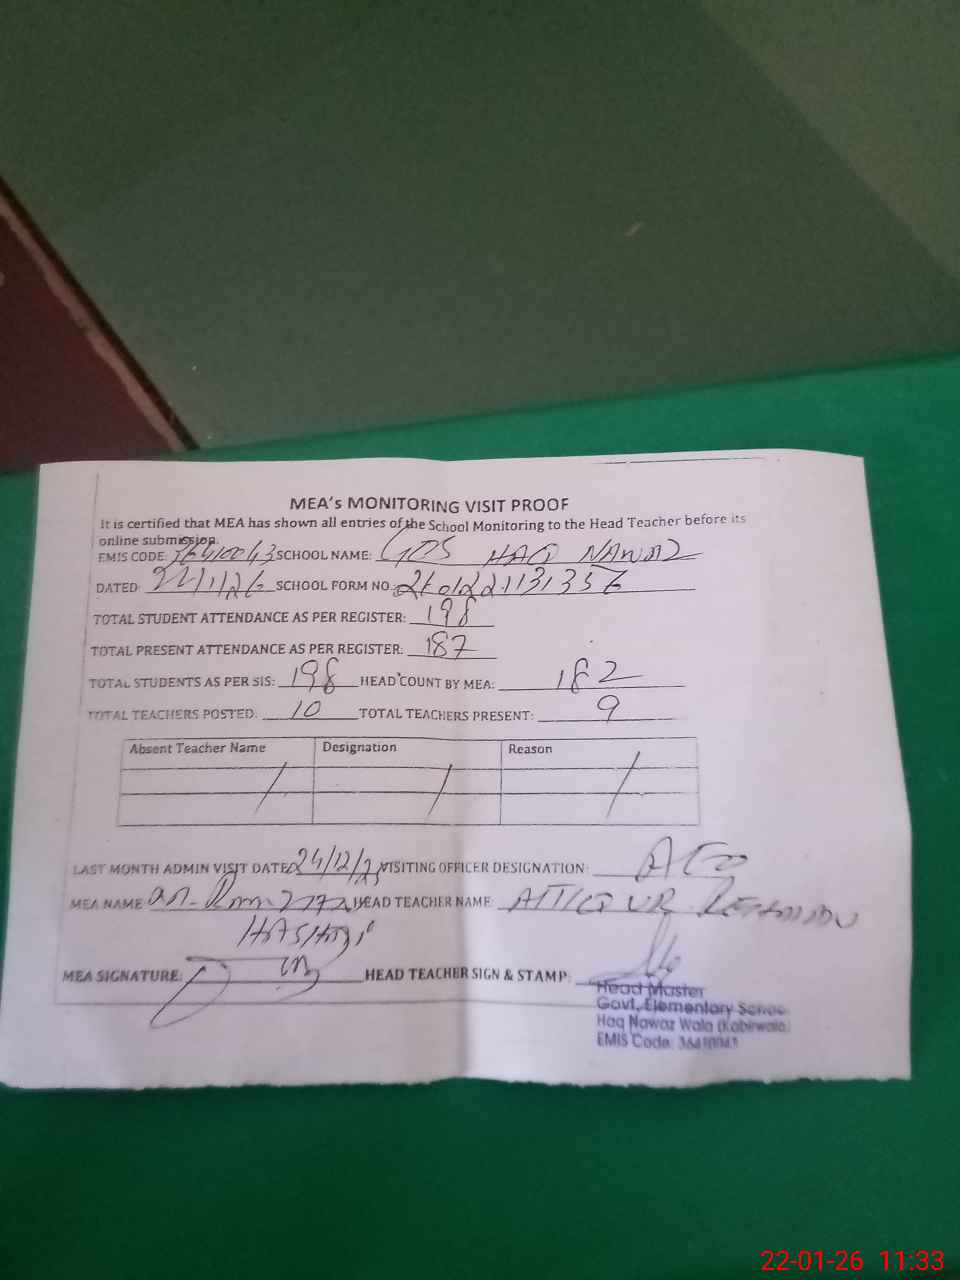 MEA's MONITORING VISIT PROOF
It is certified that MEA has shown all entries of the School Monitoring to the Head Teacher before its
online submission.
EMIS CODE: 36410043 SCHOOL NAME: HAQ NAWAZ
DATED: 22/1/26 SCHOOL FORM NO:
TOTAL STUDENT ATTENDANCE AS PER REGISTER: 198
TOTAL PRESENT ATTENDANCE AS PER REGISTER: 187
TOTAL STUDENTS AS PER SIS: 198 HEAD COUNT BY MEA: 182
TOTAL TEACHERS POSTED: 10 TOTAL TEACHERS PRESENT: 9
Absent Teacher Name Designation Reason
LAST MONTH ADMIN VISIT DATE: 24/12/25 VISITING OFFICER DESIGNATION: AEO
MEA NAME: HEAD TEACHER NAME: ATTIQ UR REHMAN
HASHMI
MEA SIGNATURE: HEAD TEACHER SIGN & STAMP:
Head Master
Govt. Elementary School
Haq Nawaz Wala (Kabirwala)
EMIS Code: 36410043
22-01-26 11:33